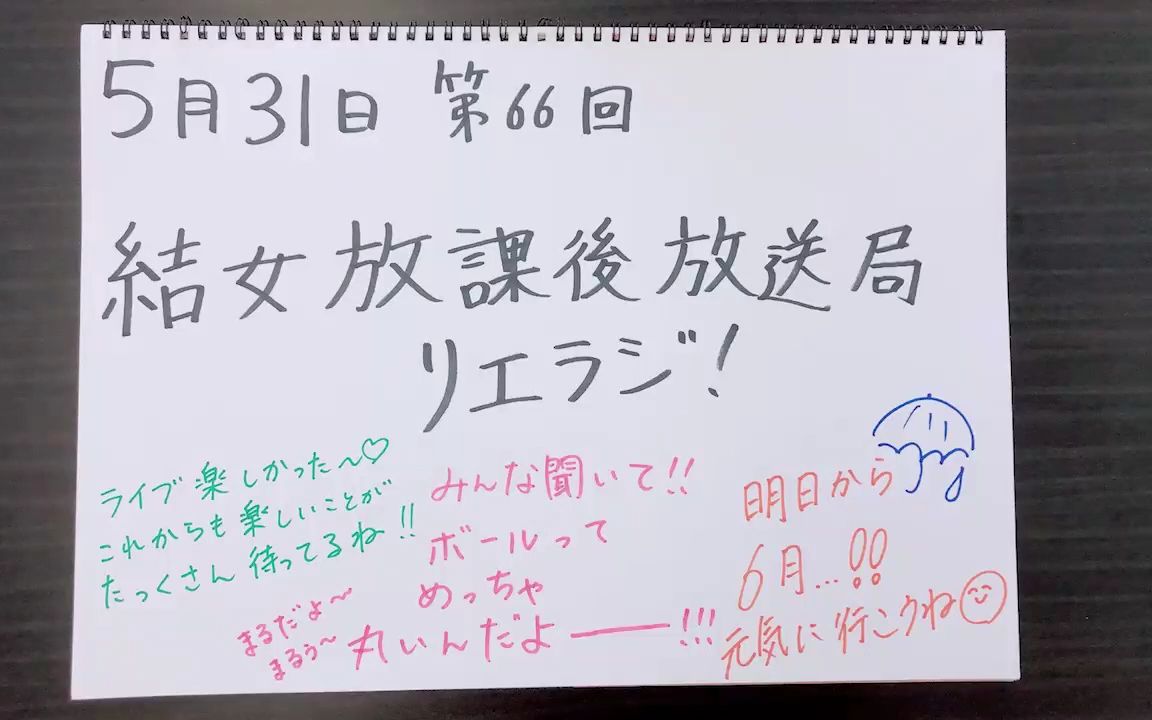 5月31日 第66回
結女放課後放送局
リエラジ!
ライブ楽しかった〜♡
これからも楽しいことが
たっくさん待ってるね!!
みんな聞いて!!
ボールって
めっちゃ
丸いんだよー!!!
まるだよ〜
まるぅ〜
明日から
6月...!!
元気に行こうね